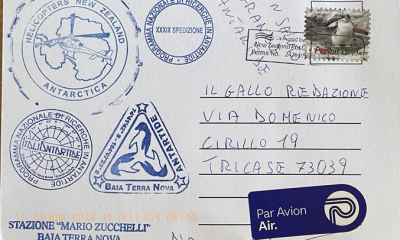 HELICOPTERS NEW ZEALAND
ANTARCTICA
PROGRAMMA NAZIONALE DI RICERCHE
XXXIX SPEDIZIONE
IN ANTARTIDE
New Zealand Post
Permit No.
IL GALLO REDAZIONE
VIA DOMENICO
CIRILLO 19
TRICASE 73039
PROGRAMMA NAZIONALE DI RICERCHE
ITALIANTARTIDE
IN ANTARTIDE
ANTARTIDE
BAIA TERRA NOVA
Par Avion
Air.
STAZIONE "MARIO ZUCCHELLI"
BAIA TERRA NOVA